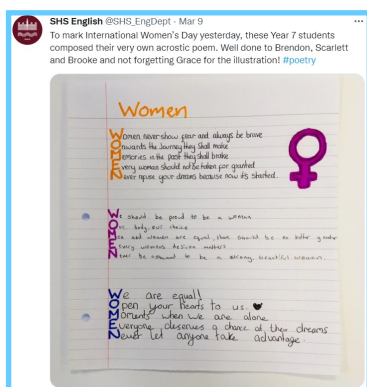 SHS English @SHS_EngDept · Mar 9
To mark International Women's Day yesterday, these Year 7 students
composed their very own acrostic poem. Well done to Brendon, Scarlett
and Brooke and not forgetting Grace for the illustration! #poetry
Women
Women never show fear and always be brave
Onwards the Journey they shall make
Memories in the past they shall brake
Every woman should not be taken for granted
Never refuse your dreams because now it's started.
We should be proud to be a woman
Our body, our choice
Men and women are equal, there should be no better gender
Every womans decision matters
Never be ashamed to be a strong, beautiful woman.
We are equal!
Open your hearts to us
Moments when we are alone
Everyone deserves a chance at their dreams
Never let anyone take advantage.